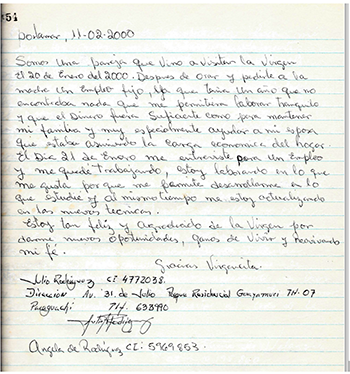 51
Bodamar, 11-02-2000
Somos una pareja que vino a visitar la Virgen
el 20 de Enero del 2000. Despues de orar y pedirle a la
madre un Empleo fijo, ya que tenia un año que no
encontraba nada que me permitiera laborar tranquilo
y que el Dinero fuera suficiente como para mantener
mi familia y muy especialmente ayudar a mi esposa
que estaba asumiendo la carga economica del hogar.
El Dia 21 de Enero me entrevisté para un Empleo
y me quedé trabajando, estoy laborando en lo que
me gusta por que me permite desarrollarme en lo
que estudie y al mismo tiempo me estoy actualizando
en las nuevas tecnicas.
Estoy tan feliz y agradecido de la Virgen por
darme nuevas oportunidades, ganas de vivir y
mi fé.
Gracias Virgencita.
Julio Rodriguez CI 4772038.
Dirección Av. 31 de Julio Residencial Guayamuri TH-07
Paraguachi Tlf. 638990
Angela de Rodriguez CI: 5969853.